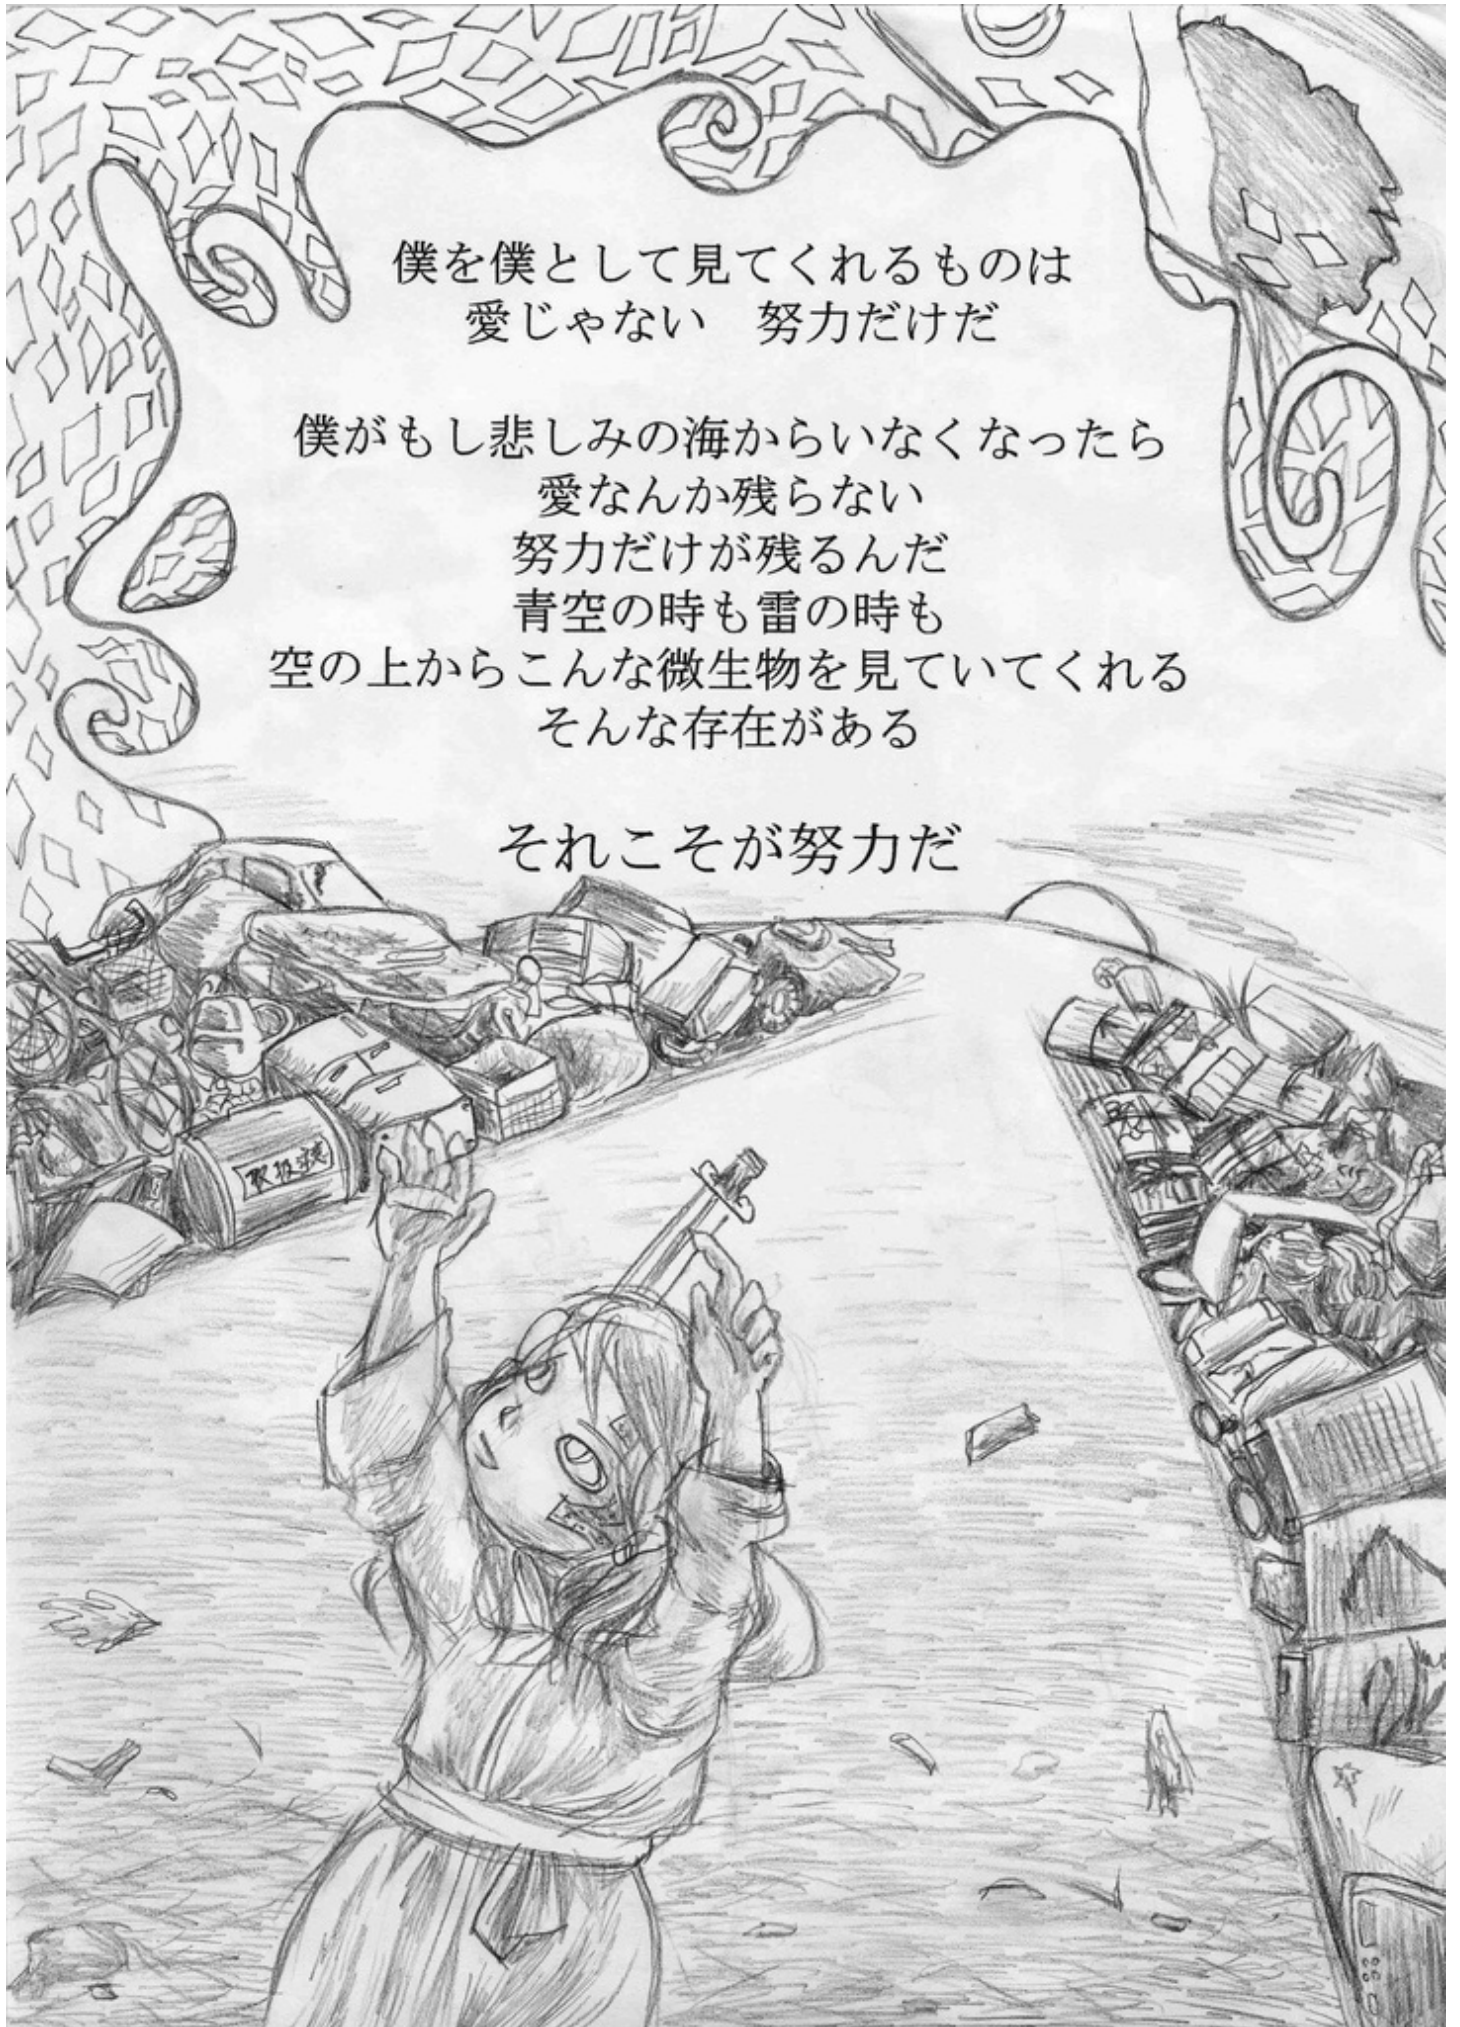 僕を僕として見てくれるものは
愛じゃない　努力だけだ
僕がもし悲しみの海からいなくなったら
愛なんか残らない
努力だけが残るんだ
青空の時も雷の時も
空の上からこんな微生物を見ていてくれる
そんな存在がある
それこそが努力だ
取扱注意